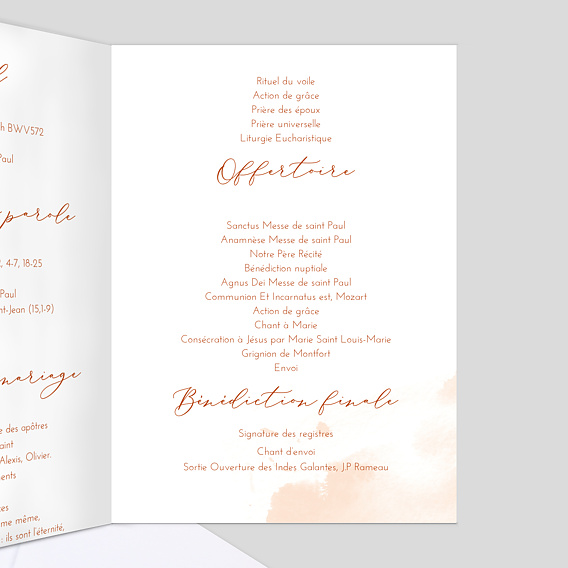 h BWV572
Paul
parole
, 4-7, 18-25
Paul
nt-Jean (15,1-9)
mariage
e des apôtres
aint
Alexis, Olivier.
ents
ces
me même,
: ils sont l'éternité,
Rituel du voile
Action de grâce
Prière des époux
Prière universelle
Liturgie Eucharistique
Offertoire
Sanctus Messe de saint Paul
Anamnèse Messe de saint Paul
Notre Père Récité
Bénédiction nuptiale
Agnus Dei Messe de saint Paul
Communion Et Incarnatus est, Mozart
Action de grâce
Chant à Marie
Consécration à Jésus par Marie Saint Louis-Marie
Grignion de Montfort
Envoi
Bénédiction finale
Signature des registres
Chant d'envoi
Sortie Ouverture des Indes Galantes, J.P Rameau